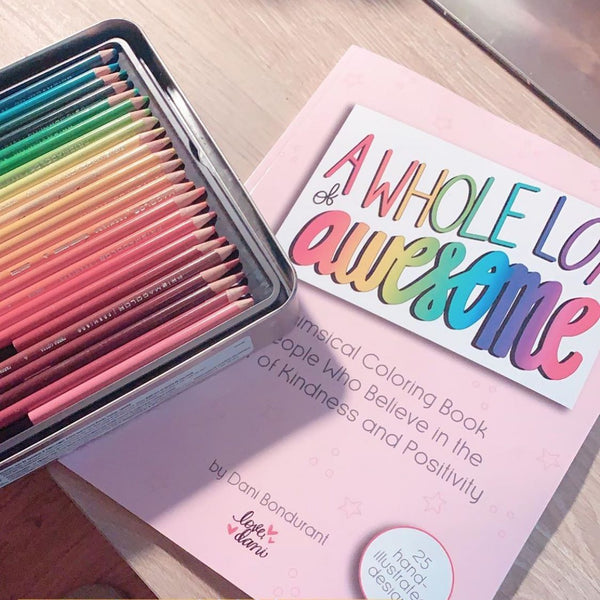 A WHOLE LOT
of
awesome
Whimsical Coloring Book
People Who Believe in the
of Kindness and Positivity
by Dani Bondurant
love,
dani
25
hand-
illustrated
designs
PRISMACOLOR PREMIER